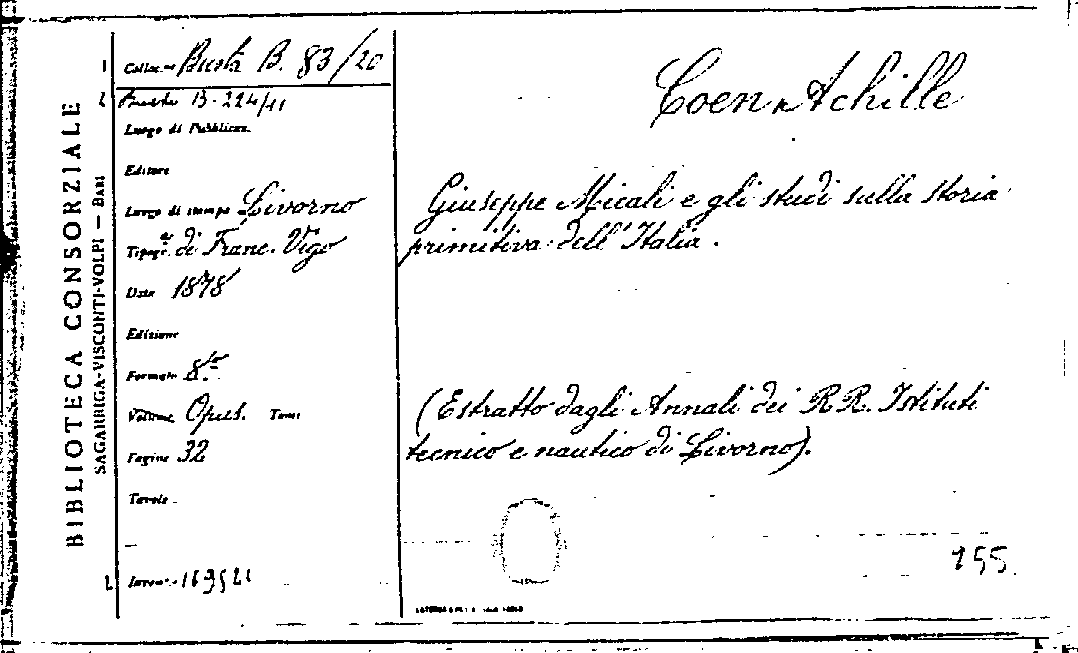 BIBLIOTECA CONSORZIALE
SAGARRIGA-VISCONTI-VOLPI — BARI
1 Colloc.ne Busta B. 83/20
2 Busta B-224/11
Luogo di Pubblicaz.
Editore
Luogo di stampa Livorno
Tipogr. di Franc. Vigo
Data 1878
Edizione
Formato 8.º
Volume Opus. Tomi
Pagine 32
Tavole
Coen Achille
Giuseppe Micali e gli studi sulla storia
primitiva dell'Italia.
(Estratto dagli Annali dei RR. Istituti
tecnico e nautico di Livorno).
155.